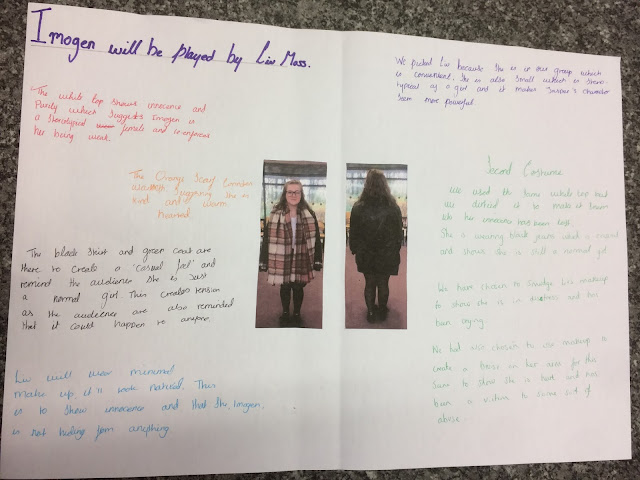 Imogen will be played by Liv Moss.
The white top shows innocence and
Purity which suggests Imogen is
a stereotypical female and reinforces
her being weak.
The Orange Scarf
Suggesting She is
kind and warm
hearted.
The black skirt and green coat are
there to create a 'casual feel' and
remind the audience she is Just
a normal girl. This creates tension
as the audience are also reminded
that it could happen to anyone.
Liv will wear minimal
make up it'll look natural. This
is to show innocence and that she, Imogen,
is not hiding from anything.
We picked Liv because she is in our group which
is convenient. She is also small which is
typical of a girl and it makes character
Seem more powerful.
Second Costume
We used the same white top but
we dirtied it to make it
like her innocence has been lost.
She is wearing black jeans
and shows she is still a normal girl.
We have chosen to smudge Liv's makeup
to show she is in distress and has
been crying.
We have also chosen to use makeup to
create a bruise on her arms for this
to show she is hurt and has
been a victim to some sort of
abuse.